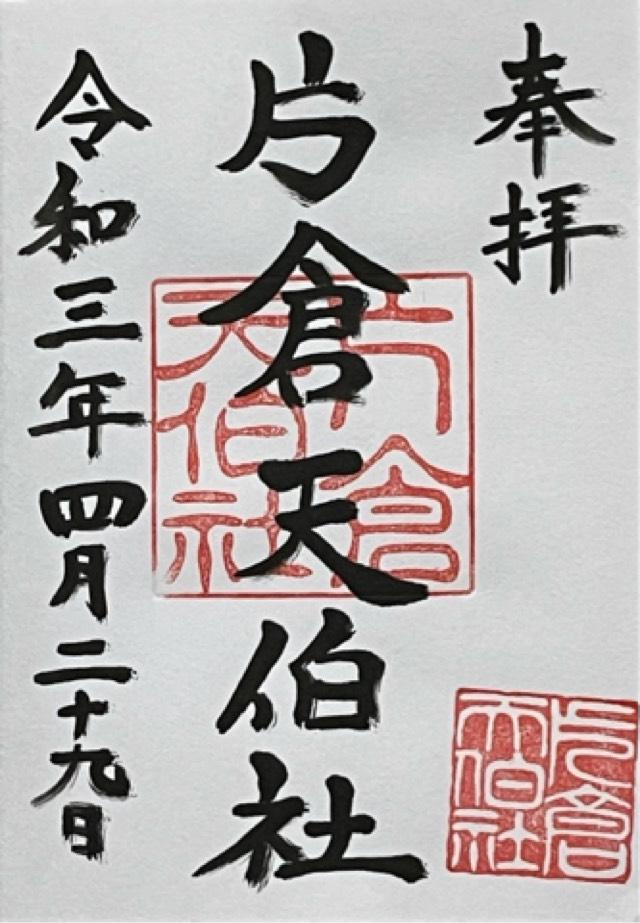 奉拝
片倉天伯社
令和三年四月二十九日
片倉
天伯社
片倉
天伯社